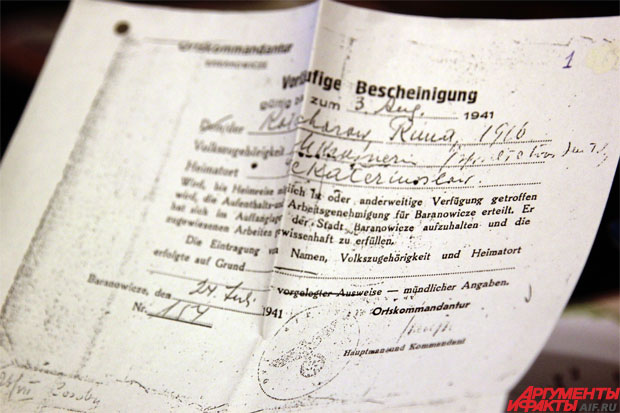 1
Ortskommandantur
BARANOWICZE
Vorläufige Bescheinigung
zum 3 Aug. 1941
Rima, 1916
Volkszugehörigkeit Ukrainerin
Heimatort Ekaterinoslaw
Wird, bis Heimreise möglich ist oder anderweitige Verfügung getroffen
wird, die Aufenthalts- und Arbeitsgenehmigung für Baranowicze erteilt. Er
hat sich im Auffanglager der Stadt Baranowicze aufzuhalten und die
zugewiesenen Arbeiten gewissenhaft zu erfüllen.
Die Eintragung von Namen, Volkszugehörigkeit und Heimatort
erfolgte auf Grund
vorgelegter Ausweise — mündlicher Angaben.
Baranowicze, den 24 Jul. 1941
Ortskommandantur
Nr. 154
Hauptmann und Kommandant
АРГУМЕНТЫ
И ФАКТЫ AIF.RU